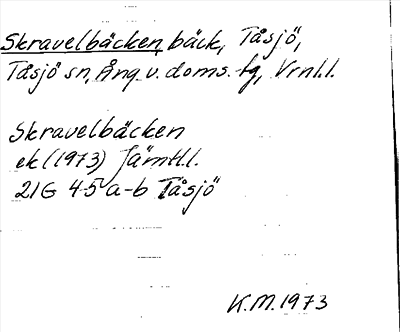 Skravelbäcken, bäck, Tåsjö,
Tåsjö sn, Ång. v. doms. tg, Vrnl.l.
Skravelbäcken
ek (1973) Jämtl.l.
21G 45 a-b Tåsjö
K.M. 1973